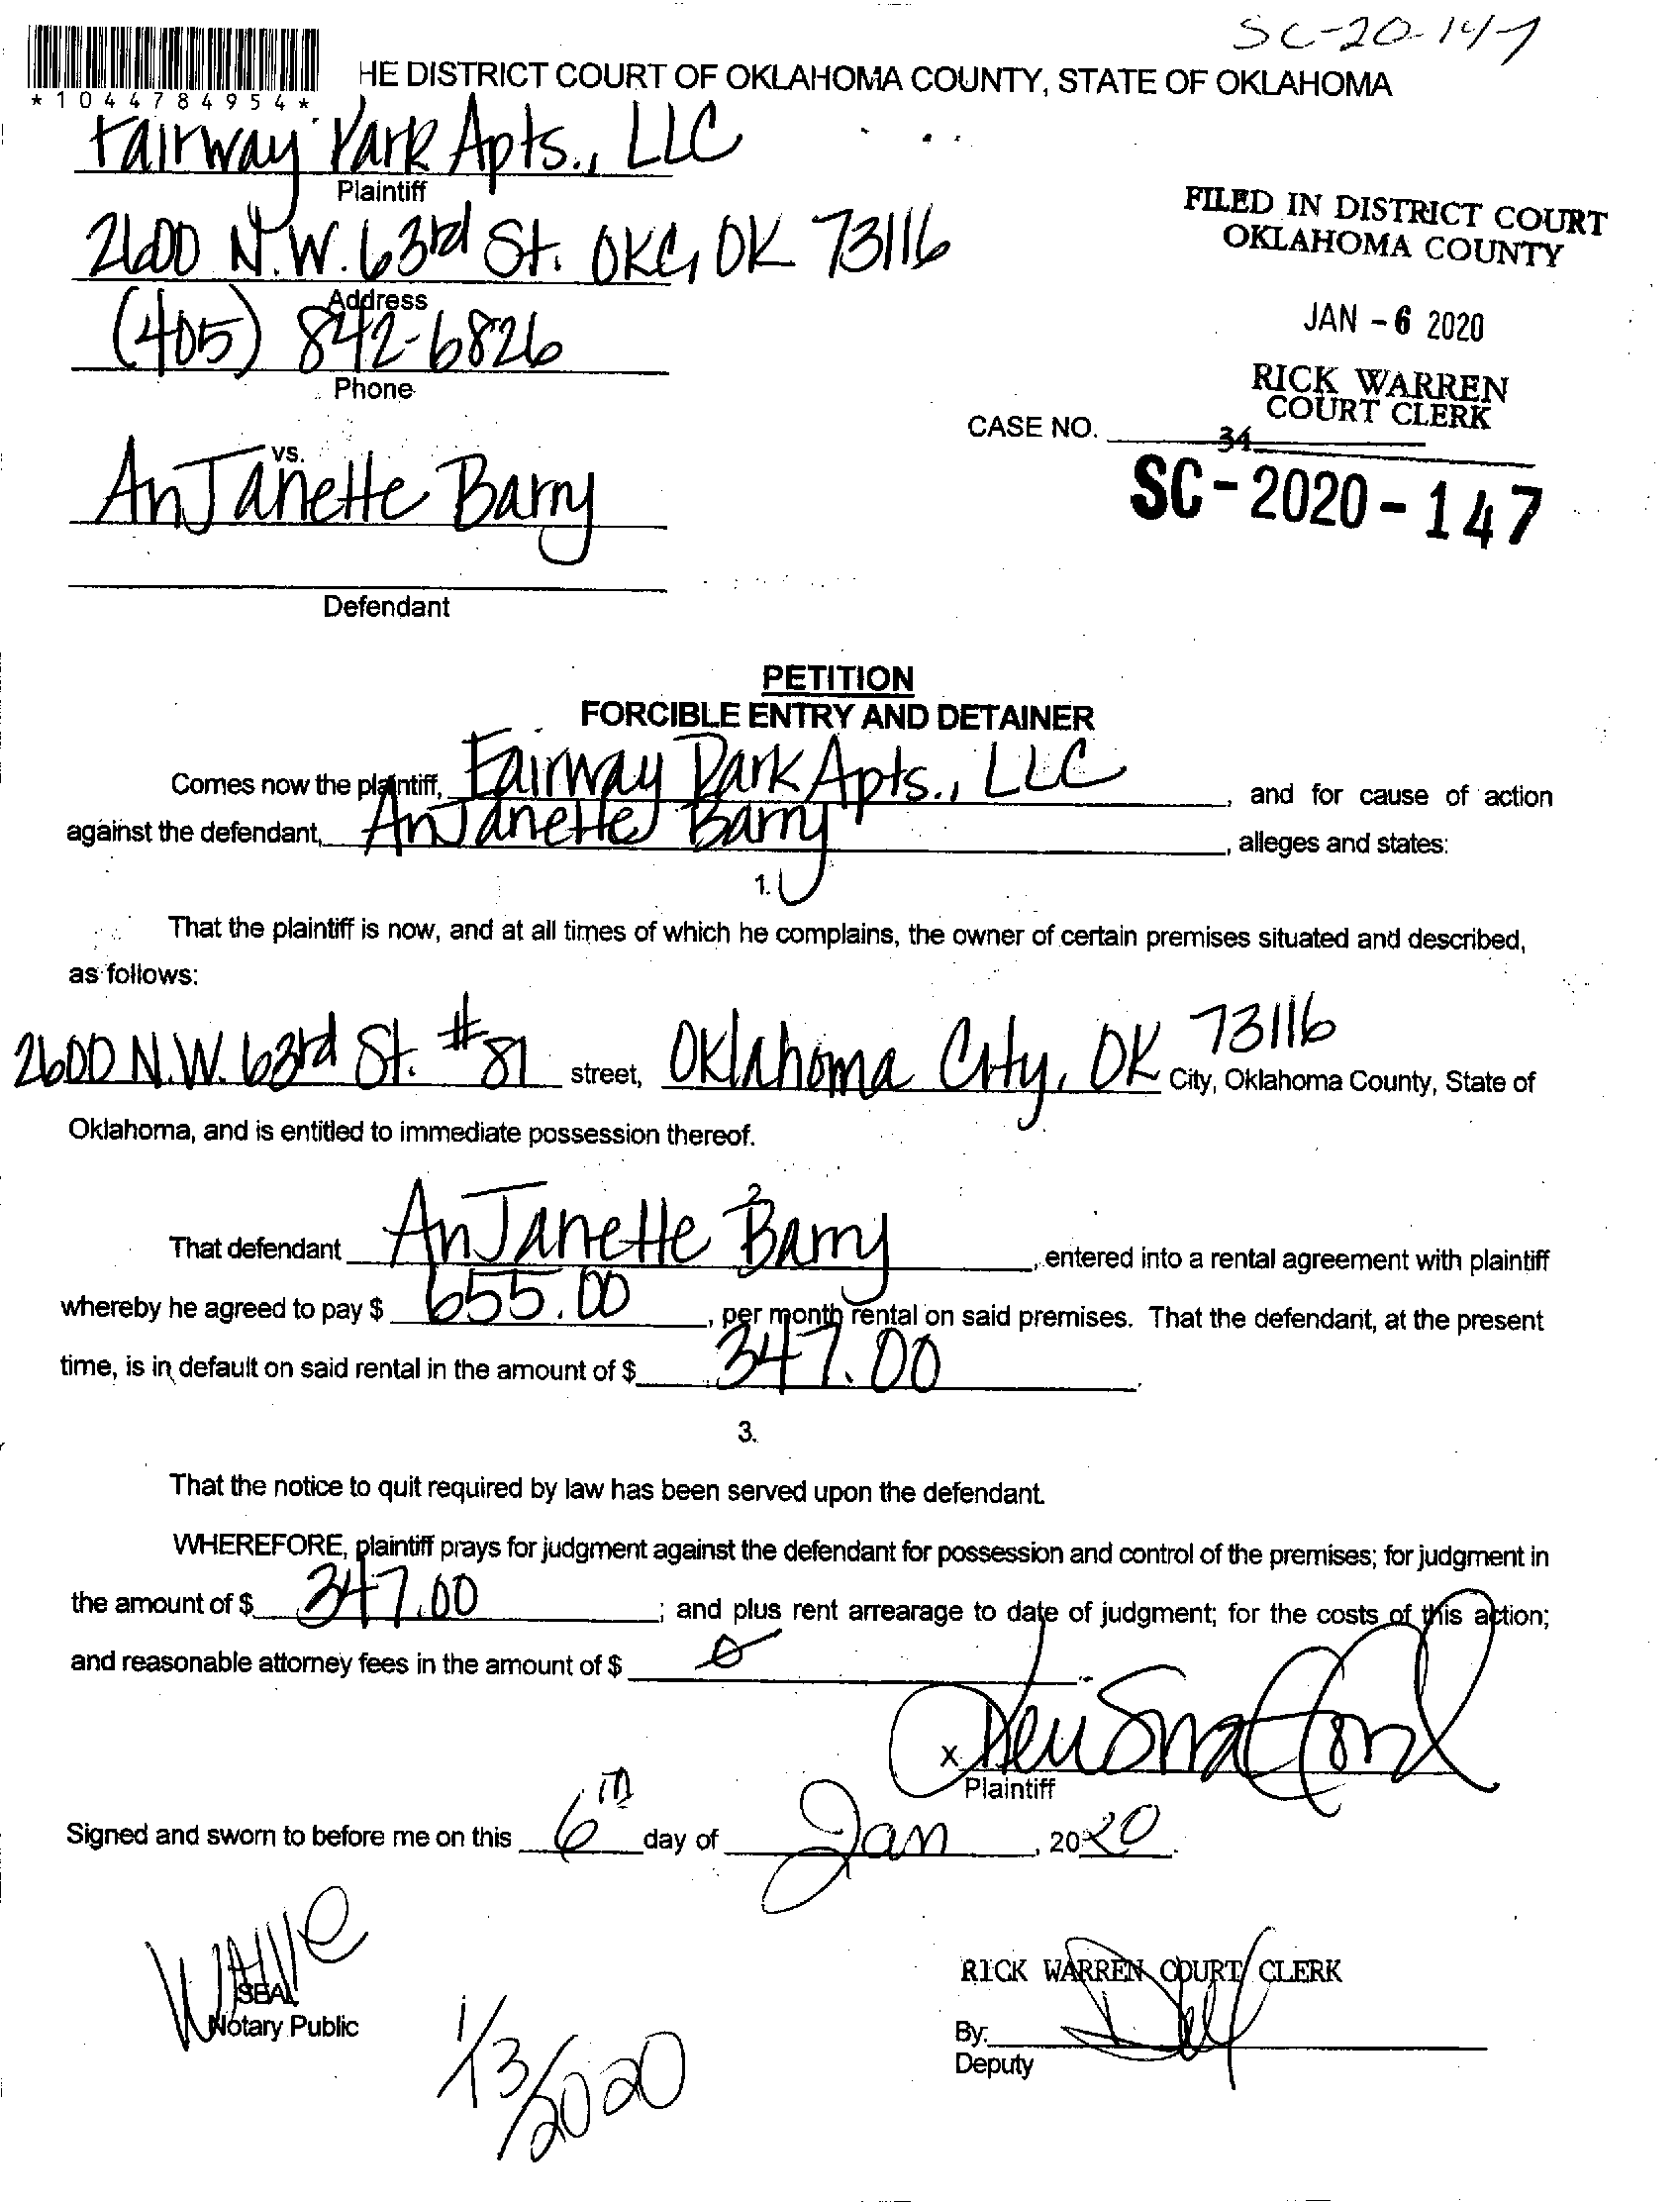 SC-20-147
HE DISTRICT COURT OF OKLAHOMA COUNTY, STATE OF OKLAHOMA
*1044784954*
Fairway Park Apts., LLC
Plaintiff
2600 N.W. 63rd St. OKC, OK 73116
Address
(405) 842-6826
Phone
FILED IN DISTRICT COURT
OKLAHOMA COUNTY
JAN - 6 2020
RICK WARREN
COURT CLERK
CASE NO.
34
SC-2020-147
vs.
AnJanette Barry
Defendant
PETITION
FORCIBLE ENTRY AND DETAINER
Comes now the plaintiff, Fairway Park Apts., LLC, and for cause of action
against the defendant, AnJanette Barry, alleges and states:
1.
That the plaintiff is now, and at all times of which he complains, the owner of certain premises situated and described,
as follows:
2600 N.W. 63rd St. #81 street, Oklahoma City, OK 73116 City, Oklahoma County, State of
Oklahoma, and is entitled to immediate possession thereof.
2.
That defendant AnJanette Barry, entered into a rental agreement with plaintiff
whereby he agreed to pay $ 655.00, per month rental on said premises. That the defendant, at the present
time, is in default on said rental in the amount of $ 347.00.
3.
That the notice to quit required by law has been served upon the defendant.
WHEREFORE, plaintiff prays for judgment against the defendant for possession and control of the premises; for judgment in
the amount of $ 347.00; and plus rent arrearage to date of judgment; for the costs of this action;
and reasonable attorney fees in the amount of $ 0.
x
Plaintiff
Signed and sworn to before me on this 6th day of Jan, 2020.
Waive
SEAL
Notary Public
1/3/2020
RICK WARREN COURT CLERK
By:
Deputy